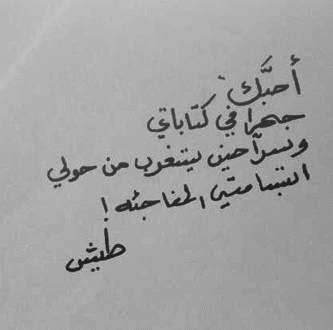 أحبَّك
جهراً في كتاباتي
وسرّاً حين يستغرب من حولي
ابتسامتي المفاجئه !
طيش